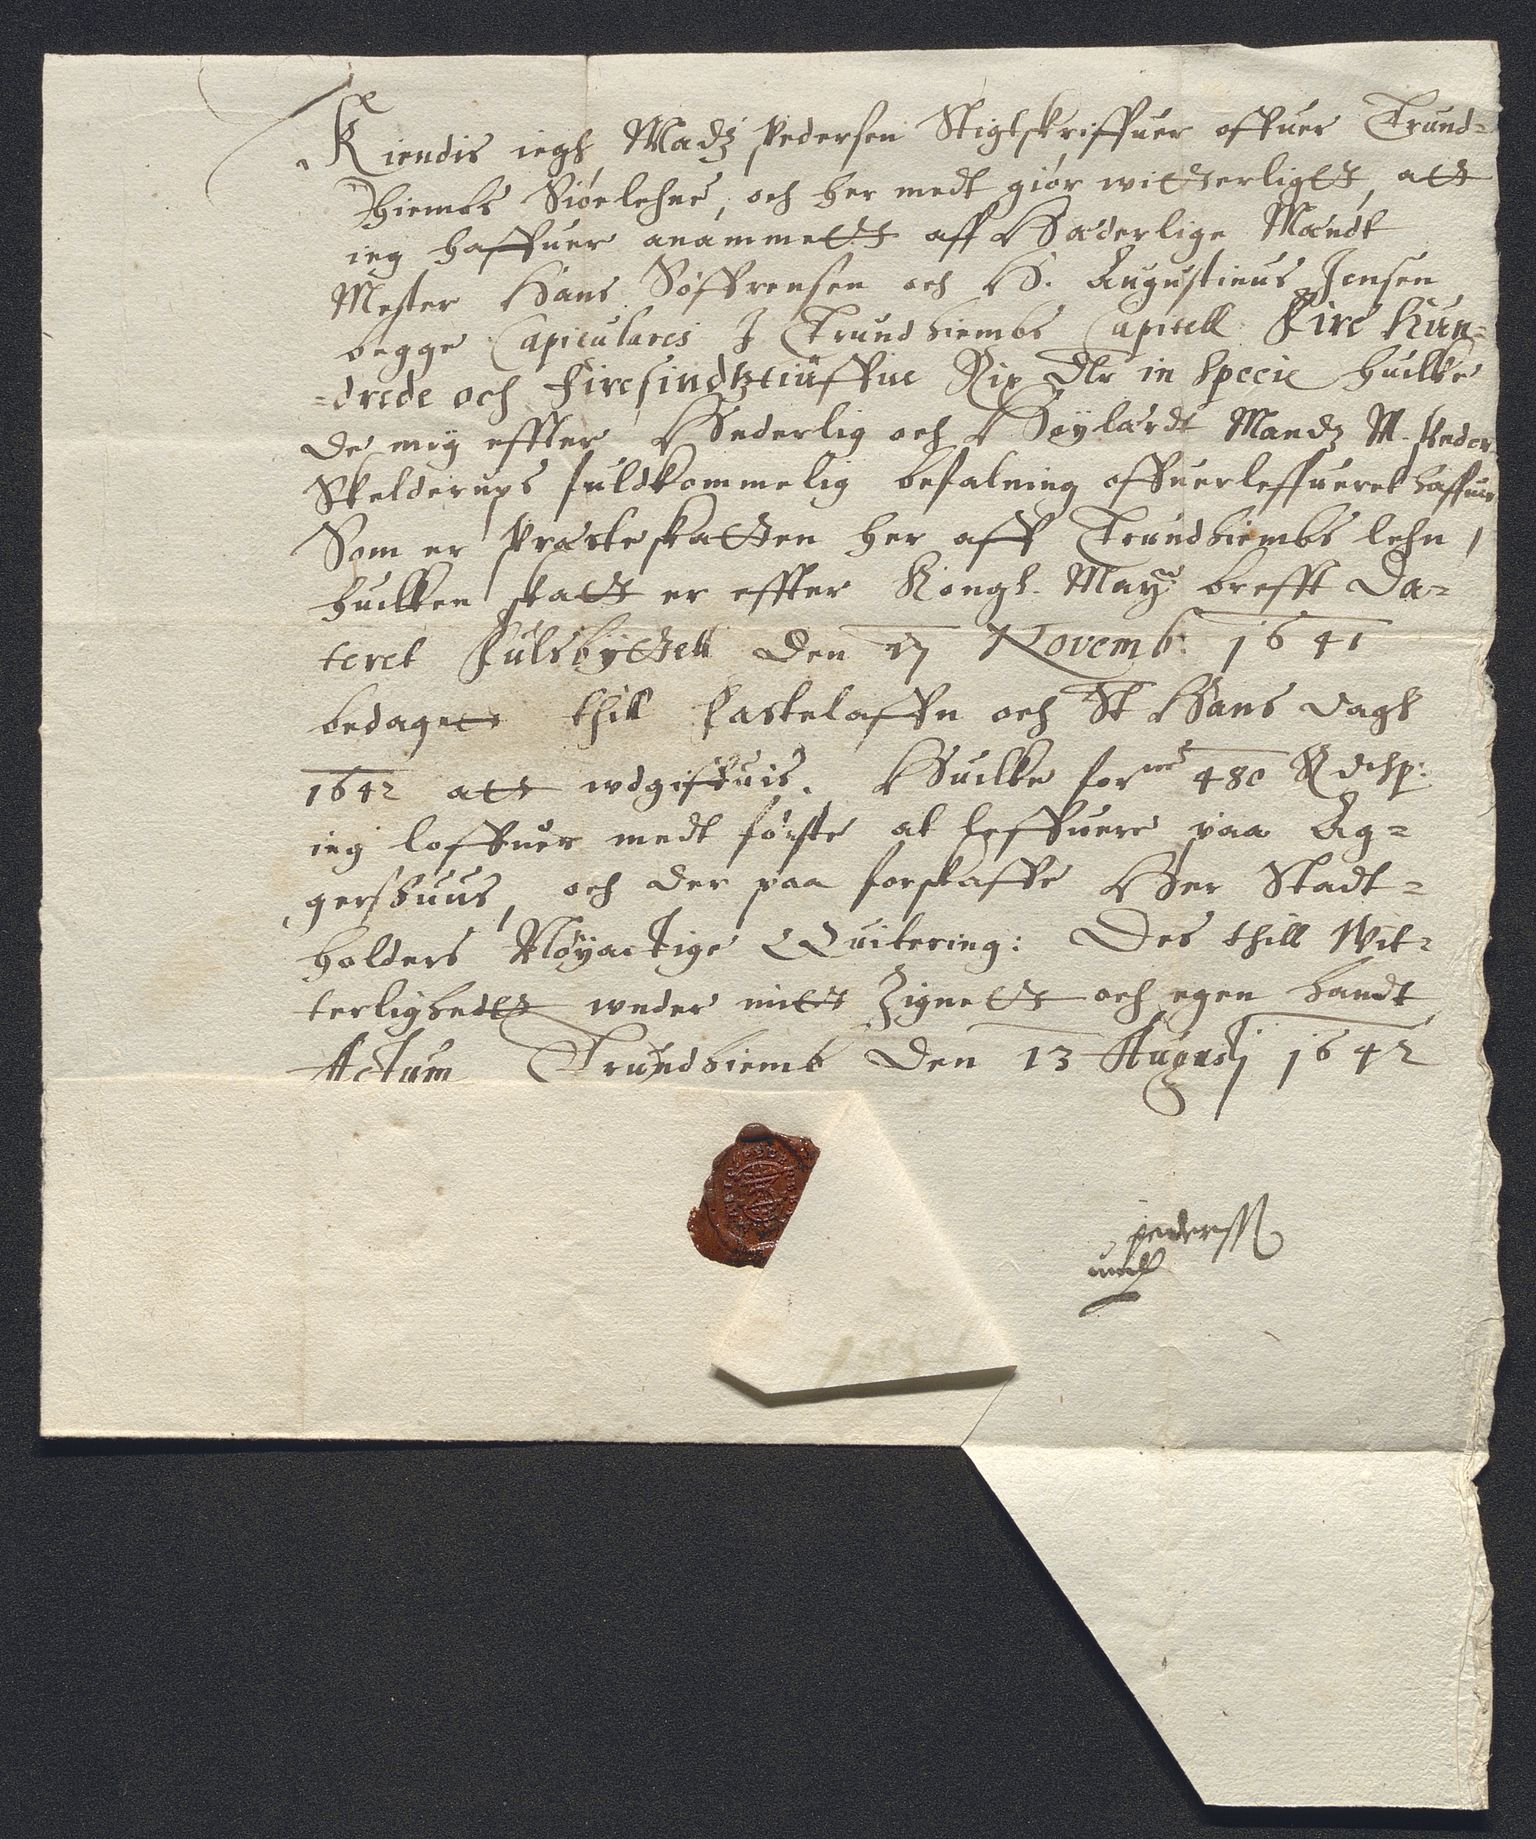 Kiendis iegh Madz Pedersen Stigtskriffuer offuer Trund-
hiembs Siøelehne, och her medt giør witterligtt, att
ieg haffuer anammett aff Hæderlige Mændt
Mester Hans Søffrensen och H. Augustinus Jensen
begge Capitulares J Trundhiembs Capitell Fire Hun-
-drede och Firesindtztiuffue Rix Dlr in specie huilke
de mig effter Hederlig och Høylærdt Mandz M. Peder
Skelderups fuldkommelig befalning offuerleffueret haffuer
Som er Præsteskatten her aff Trundhiembs lehn,
huilken skatt er effter Kongl. Mayts breff Da-
teret Fulsbyttell den 17 Novemb: 1641
bedaget thill Fastelaffn och St Hans dagh
1642 att wdgiffuis. Huilke forne 480 Rdsp:
ieg loffuer medt første at leffuere paa Ag-
gershuus, och der paa forskaffe Her Stadt-
holders Nøyactige Quitering: Des thill Wit-
terlighedtt wnder mitt Zignett och egen handt
Actum Trundhiemb den 13 Augustj 1642
pederss